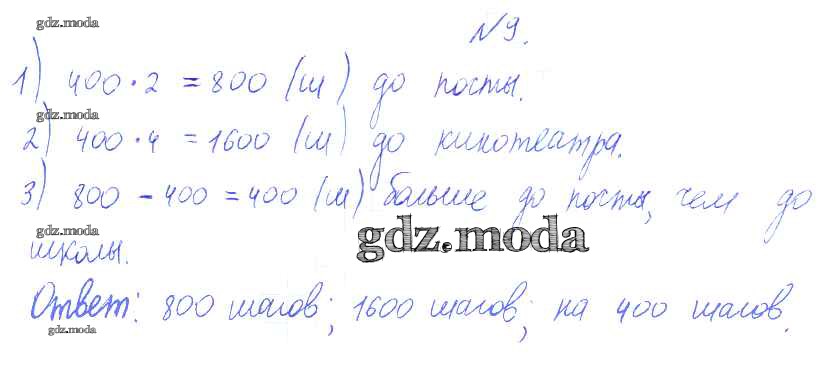 gdz.moda
№ 9.
1) 400 · 2 = 800 (ш) до посты.
gdz.moda
2) 400 · 4 = 1600 (ш) до кинотеатра.
3) 800 - 400 = 400 (ш) больше до посты, чем до
gdz.moda
школы.
gdz.moda
Ответ: 800 шагов; 1600 шагов; на 400 шагов.
gdz.moda